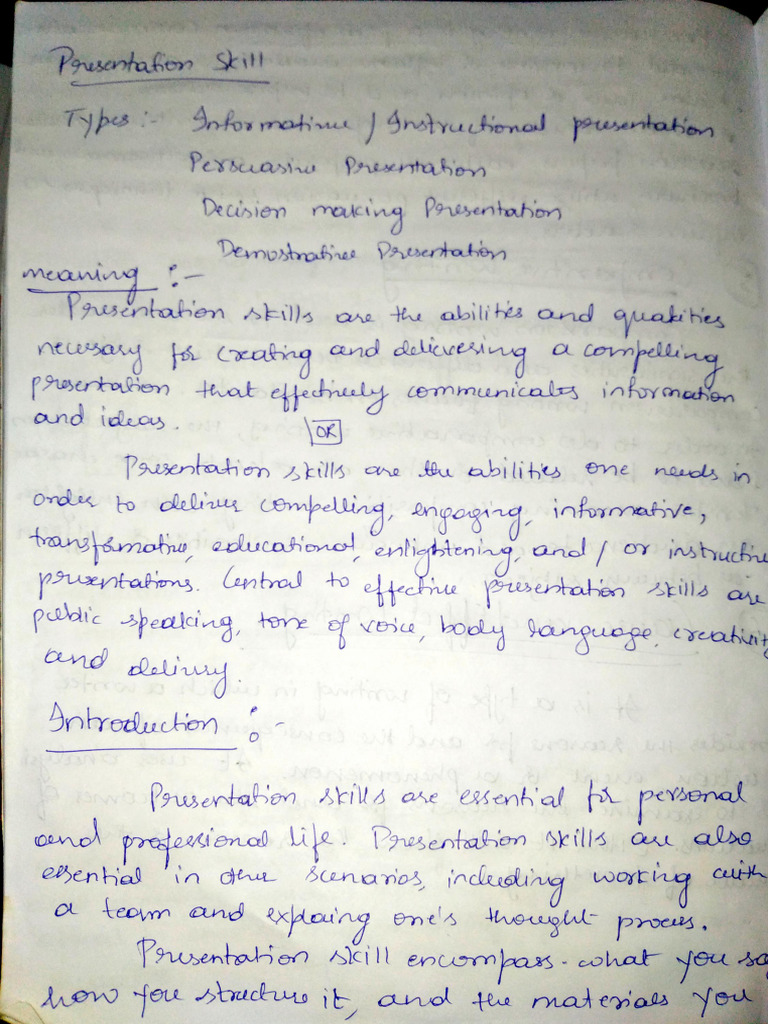 Presentation Skill
Types :- Informative / Instructional presentation
Persuasive Presentation
Decision making Presentation
Demostrative Presentation
meaning :-
Presentation skills are the abilities and qualities
necessary for creating and delievering a compelling
presentation that effectively communicates information
and ideas. OR
Presentation skills are the abilities one needs in
order to deliver compelling, engaging, informative,
transformative, educational, enlightening, and / or instructive
presentations. Central to effective presentation skills are
public speaking, tone of voice, body language, creativity
and delivery.
Introduction :-
Presentation skills are essential for personal
and professional life. Presentation skills are also
essential in other scenarios, including working with
a team and explaing one's thought process.
Presentation skill encompass - what you say
how you structure it, and the materials you